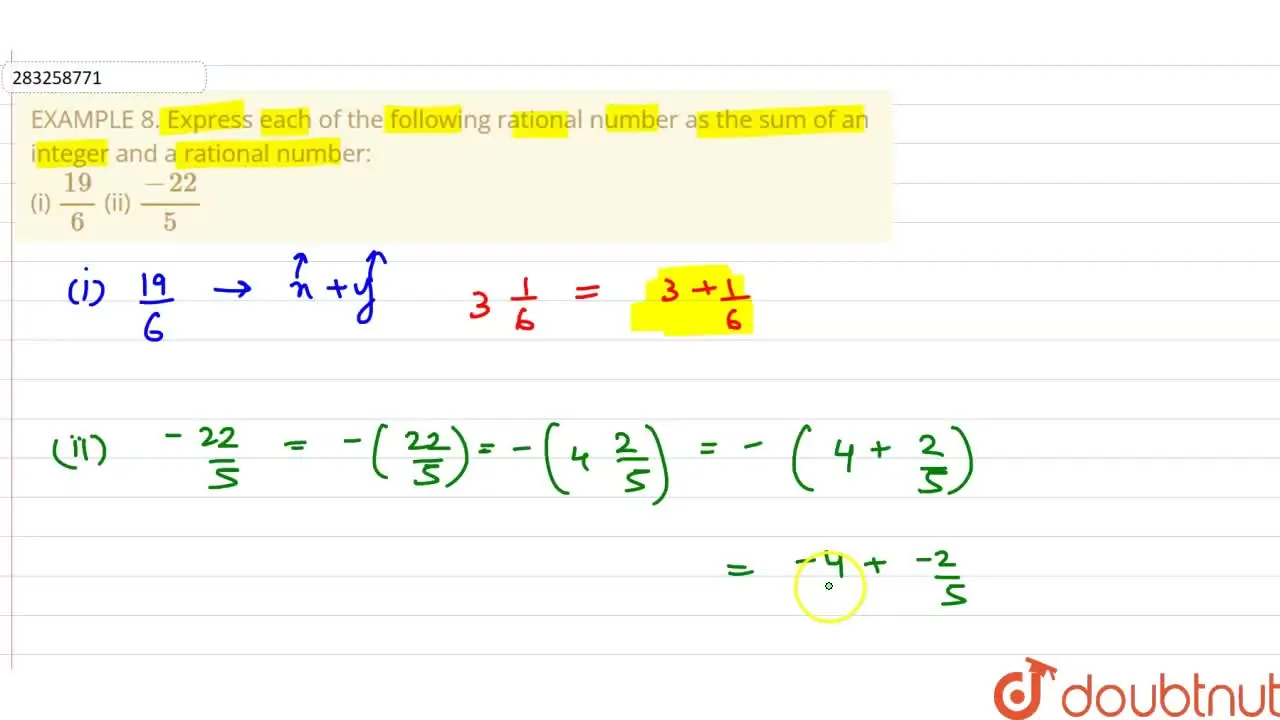 283258771
EXAMPLE 8. Express each of the following rational number as the sum of an
integer and a rational number:
(i) 19/6 (ii) -22/5
(i) 19/6 → x + y 3 1/6 = 3 + 1/6
(ii) - 22/5 = - (22/5) = - (4 2/5) = - (4 + 2/5)
= -4 + -2/5
doubtnut